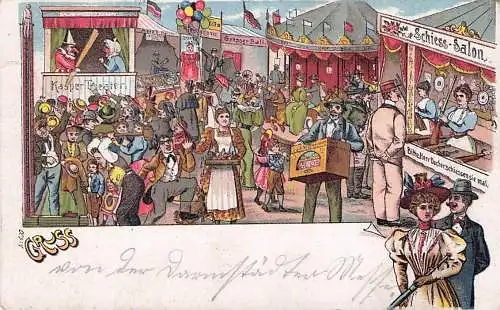 Kasper Theater
Grosser Ball
Schiess-Salon.
Bitte, Herr Bucher schiessen sie mal.
Gruss
von der Darmstädter Messe